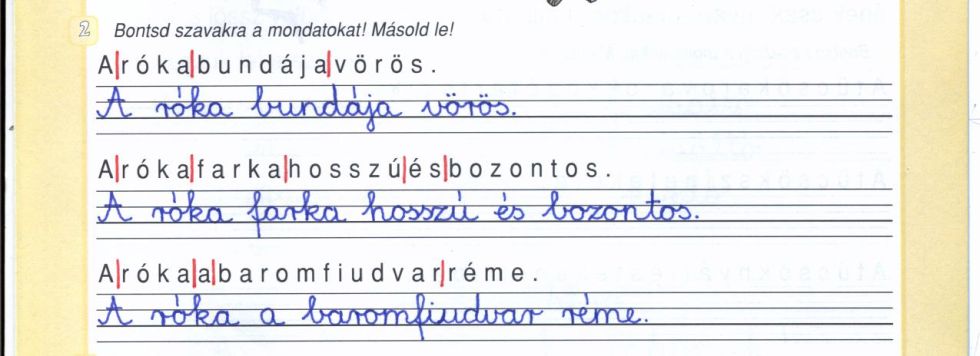 2 Bontsd szavakra a mondatokat! Másold le!
A|róka|bundája|vörös.
A róka bundája vörös.
A|róka|farka|hosszú|és|bozontos.
A róka farka hosszú és bozontos.
A|róka|a|baromfiudvar|réme.
A róka a baromfiudvar réme.